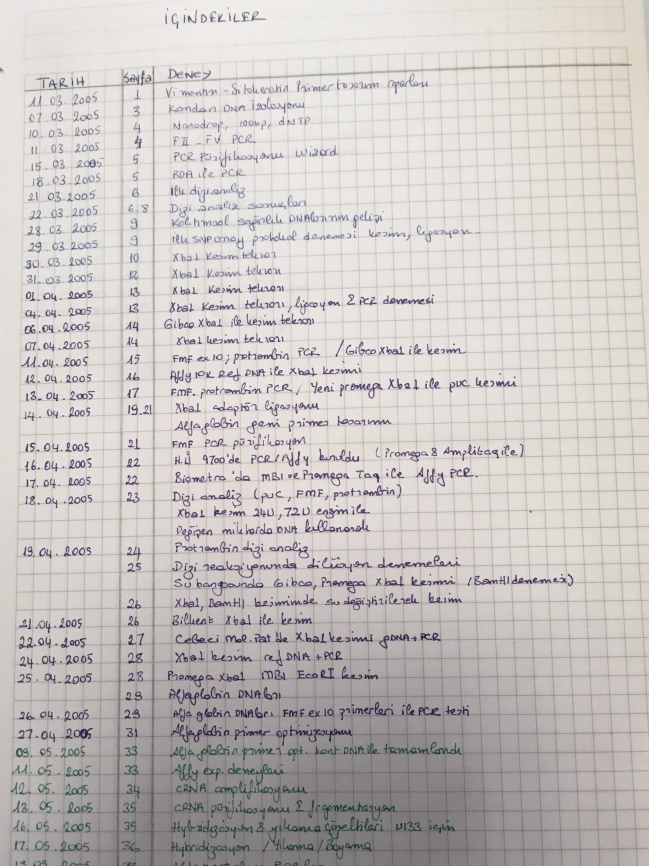 İÇİNDEKİLER
TARİH Sayfa Deney
11 03 2005 1 Vimentin - Sitokeratin Primer tasarım raporları
07. 03 2005 3 Kandan DNA izolasyonu
10. 03 2005 4 Nanodrop, 100bp, dNTP
11 03 2005 4 FII - FV PCR
15. 03 2005 5 PCR Pürifikasyonu Wizard
18. 03 2005 5 RDA ile PCR
21 03 2005 6 İlk dizi analiz
22. 03 2005 6.8 Dizi analiz sonuçları
28. 03 2005 9 sağırlık DNAlarının gelişi
29. 03 2005 9 İlk protokol denemesi kesim, ligasyon
30. 03 2005 10 XbaI kesim tekrarı
31. 03 2005 12 XbaI kesim tekrarı
01. 04. 2005 13 XbaI kesim tekrarı
04. 04. 2005 13 XbaI kesim tekrarı, ligasyon & PCR denemesi
06. 04. 2005 14 Gibco XbaI ile kesim tekrarı
07. 04. 2005 14 XbaI kesim tekrarı
11. 04. 2005 15 FMF ex10; protrombin PCR / Gibco XbaI ile kesim
12. 04. 2005 16 Affy 10K Ref DNA ile XbaI kesimi
13. 04 2005 17 FMF. protrombin PCR / Yeni promega XbaI ile puc kesimi
14. 04 2005 19.21 XbaI adaptör ligasyonu
Alfaglobin geni primer tasarımı
15. 04. 2005 21 FMF PCR pürifikasyon
16. 04. 2005 22 H.Ü 9700'de PCR/Affy kuruldu (Promega & Amplitaq ile)
17. 04. 2005 22 Biometra'da MBI ve Promega Taq ile Affy PCR.
18. 04. 2005 23 Dizi analiz (puC, FMF, protrombin)
XbaI kesim 24U, 72U enzim ile
Değişen miktarda DNA kullanarak
19. 04. 2005 24 Protrombin dizi analiz
25 Dizi reaksiyonunda dilüsyon denemeleri
Su banyosunda Gibco, Promega XbaI kesimi (BamHI denemesi)
26 XbaI, BamHI kesiminde su değiştirilerek kesim
21. 04. 2005 26 Bilkent XbaI ile kesim
22. 04. 2005 27 Cebeci Mol. Pat'de XbaI kesimi gDNA + PCR
24. 04. 2005 28 XbaI kesim ref DNA + PCR
25. 04. 2005 28 Promega XbaI MBI EcoRI kesim
29 Alfaglobin DNAları
26. 04. 2005 29 Alfa globin DNAları FMF ex 10 primerleri ile PCR testi
27. 04 2005 31 Alfaglobin primer optimizasyonu
09. 05. 2005 33 Alfa globin primer opt. kont DNA ile tamamlandı
11. 05. 2005 33 Affy exp. deneyleri
12. 05. 2005 34 CRNA amplifikasyonu
13. 05. 2005 35 CRNA pürifikasyonu & fragmentasyon
16. 05. 2005 35 Hybridizasyon & yıkama çözeltileri U133 için
17. 05. 2005 36 Hybridizasyon / Yıkama / Boyama